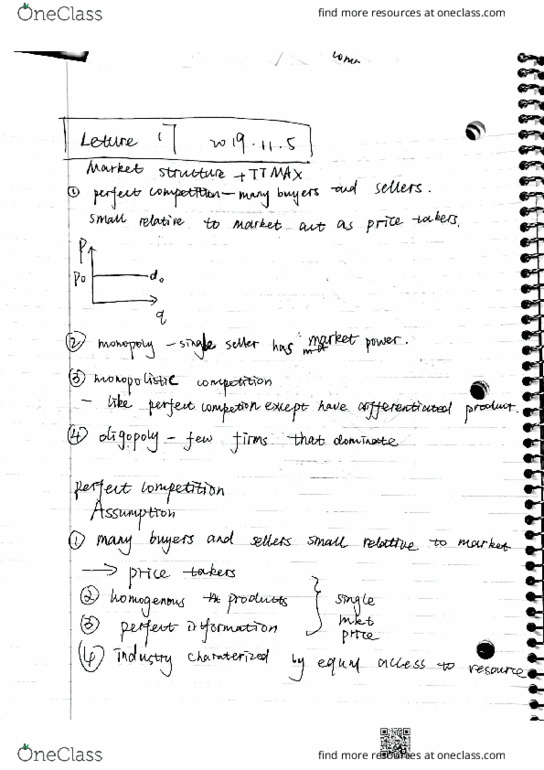 OneClass
find more resources at oneclass.com
Leture 17 2019.11.5
Market structure + TTMAX
① perfect competition - many buyers and sellers.
small relative to market act as price takers.
P
P0
d0
q
② monopoly - single seller has market power.
③ monopolistic competition
- like perfect competion except have differentiated product.
④ oligopoly - few firms that dominate
perfect competition
Assumption
① many buyers and sellers small relative to market
→ price takers
② homogenous products
③ perfect information
single
mkt
price
④ industry charaterized by equal access to resource
OneClass
find more resources at oneclass.com